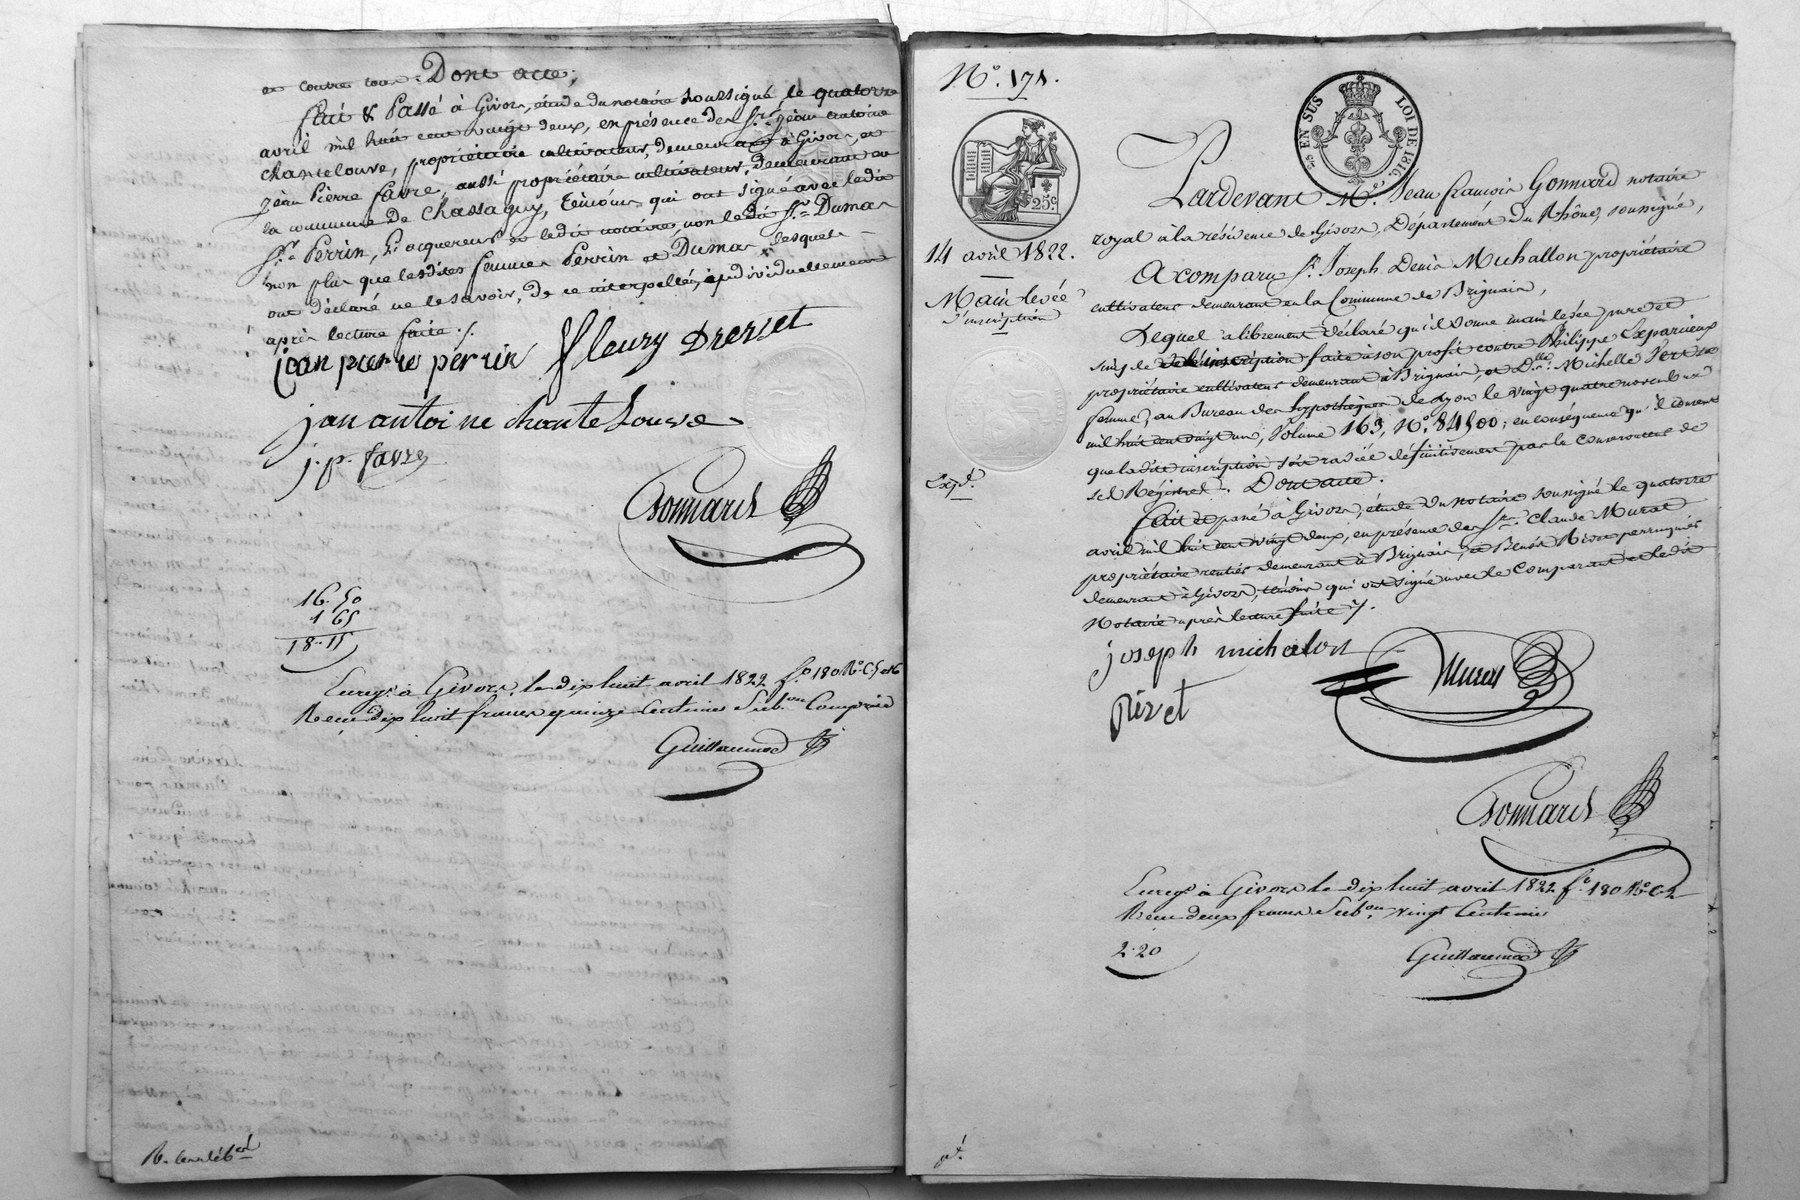 et contre tous. Dont acte;
fait & Passé à Givors, étude du notaire soussigné, le quatorze
avril mil huit cent vingt deux, en présence des Srs. jean antoine
Chantelouve, propriétaire cultivateur, demeurant à Givors, et
jean Pierre favre, aussi propriétaire cultivateur, demeurant en
la commune de Chassagny, témoins qui ont signé avec ledit
Sr. Perrin, l'acquereur et ledit notaire, non ledit Sr. Dumas
non plus que lesdites femmes Perrin et Dumas, lesquels
ont déclaré ne le savoir, de ce interpellés, individuellement
après lecture faite ./.
jean pierre périn fleury Drevet
jan antoine chante Louve
j. p. favre
Gonnard
16. 50
1 65
18.. 15
Enregé. à Givors, le dix huit avril 1822 fo. 180 Ro. C. 5 et 6
Reçu dix huit francs quinze Centimes Subon. Comprise
Guillaumod
N°. 171.
25 EN SUS
LOI DE 1816.
25c.
14 avril 1822.
Main levée
d'inscription
Expé.
Pardevant Me. Jean François Gonnard notaire
royal à la résidence de Givors, Département du Rhône, soussigné,
A comparu Sr. Joseph Denis Michallon propriétaire
cultivateur demeurant en la Commune de Brignais,
Lequel a librement déclaré qu'il donne main levée pure et
simple de l'inscription faite à son profit contre Philippe
propriétaire cultivateur demeurant à Brignais, et Dlle. Michelle
femme, au Bureau des hypothèques de Lyon le vingt quatre novembre
mil huit cent vingt un, Volume 163, N°. 84500; en conséquence qu'il consent
que ladite inscription soit radiée définitivement par le Conservateur de
ses Régistres. Dont acte.
fait et passé à Givors, étude du notaire soussigné le quatorze
avril mil huit cent vingt deux, en présence des Srs. Claude Murat
propriétaire rentier demeurant à Brignais, et Benoit perruquier
demeurant à Givors, témoins qui ont signé avec le Comparant et ledit
Notaire après lecture faite ./.
joseph michalon Murat
Gonnard
Enregé. à Givors le dix huit avril 1822 fo. 180 Ro. C. 2
Reçu deux francs Subon. vingt Centimes
2. 20
Guillaumod